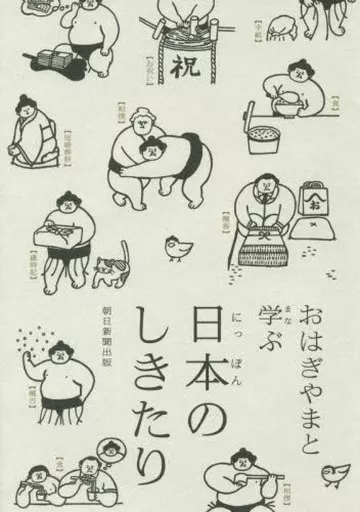 おはぎやまと
学ぶ
まな
日本の
にっぽん
しきたり
朝日新聞出版
【手紙】
【お祝い】
祝
【食】
【相撲】
【冠婚葬祭】
【贈答】
【歳時記】
【縁起】
【食】
【相撲】